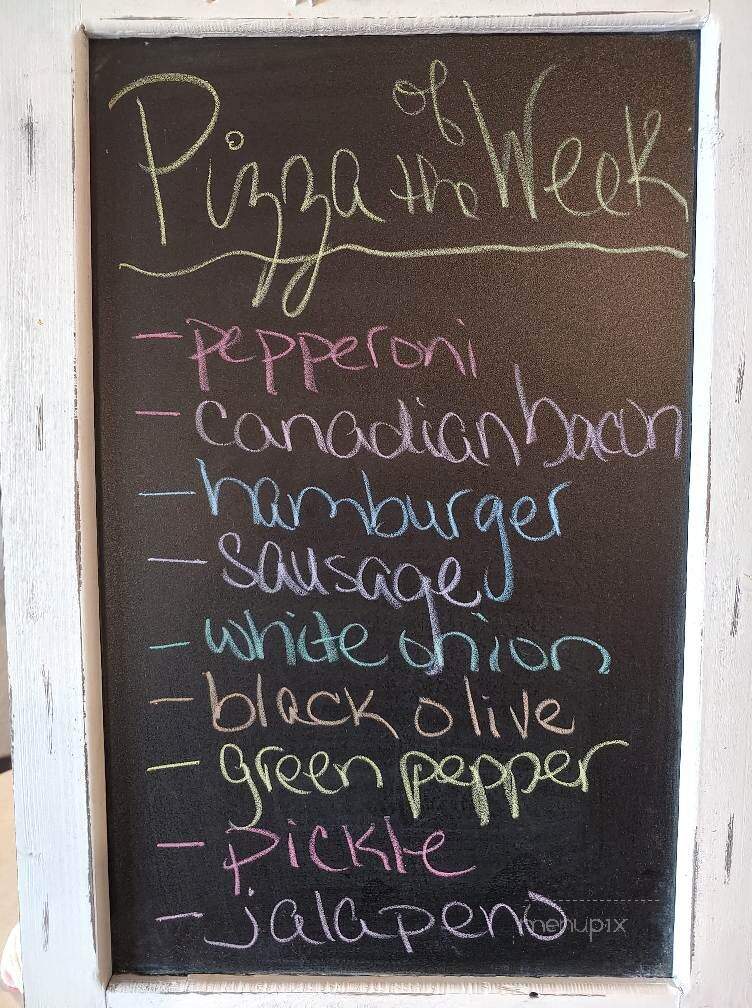 Pizza of the Week
- pepperoni
- canadian bacon
- hamburger
- sausage
- white onion
- black olive
- green pepper
- pickle
- jalapeno
menupix